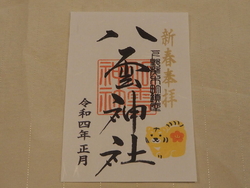 新春奉拝
八雲神社
令和四年 正月